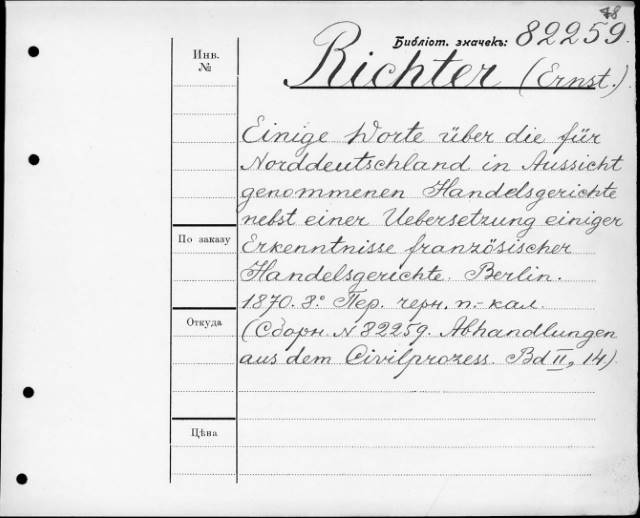 48
Библіот. значекъ: 82259.
Инв.
№
Richter (Ernst.)
Einige Worte über die für
Norddeutschland in Aussicht
genommenen Handelsgerichte
nebst einer Uebersetzung einiger
По заказу
Erkenntnisse französischer
Handelsgerichte. Berlin.
1870. 8° Пер. черн. п.-кал.
Откуда
(Сборн. N 82259. Abhandlungen
aus dem Civilprozess. Bd II, 14)
Цѣна